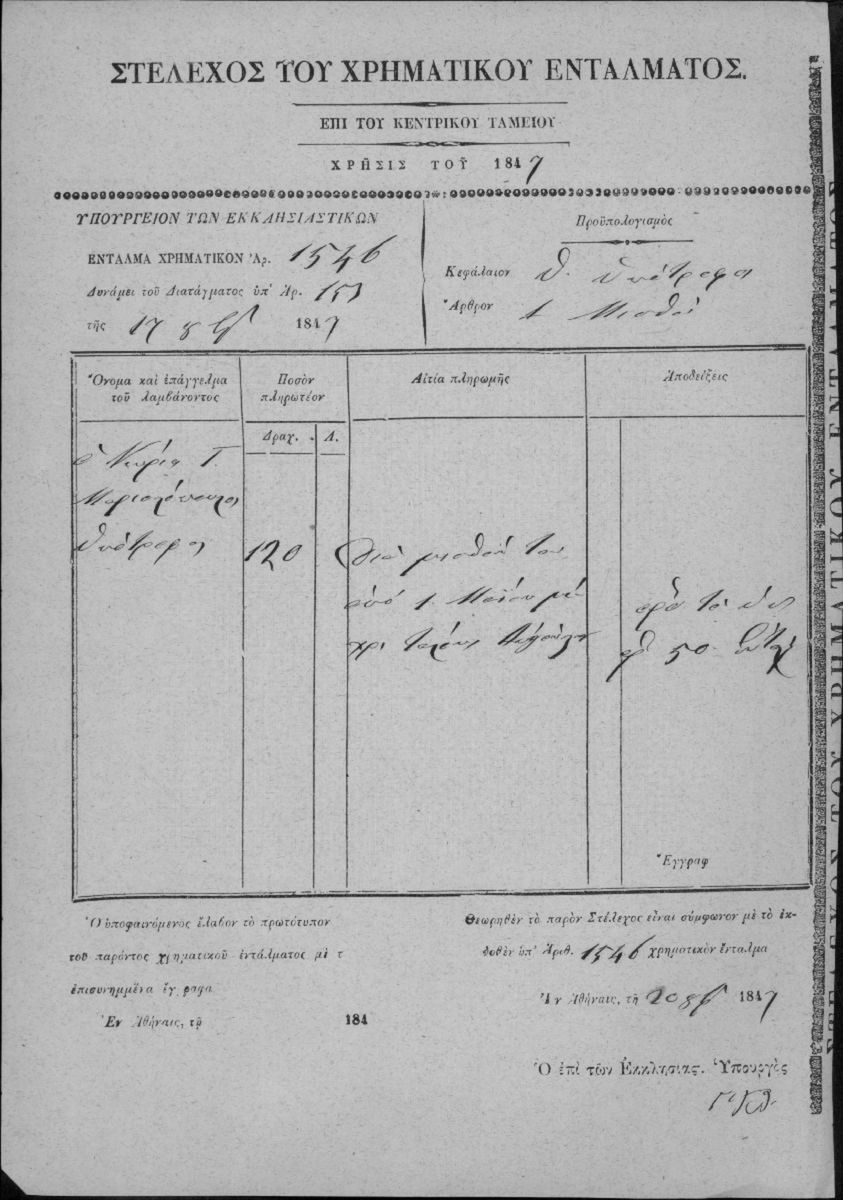 ΣΤΕΛΕΧΟΣ ΤΟΥ ΧΡΗΜΑΤΙΚΟΥ ΕΝΤΑΛΜΑΤΟΣ.
ΕΠΙ ΤΟΥ ΚΕΝΤΡΙΚΟΥ ΤΑΜΕΙΟΥ
ΧΡΗΣΙΣ ΤΟΥ͂ 1847
ΥΠΟΥΡΓΕΙΟΝ ΤΩΝ ΕΚΚΛΗΣΙΑΣΤΙΚΩΝ
ΕΝΤΑΛΜΑ ΧΡΗΜΑΤΙΚΟΝ Ἀρ. 1546
Δυνάμει τοῦ Διατάγματος ὑπ' Ἀρ. 151
τῆς 17 8βρ 1847
Προϋπολογισμὸς
Κεφάλαιον Θ. Ὑπότροφοι
Ἄρθρον 1 Μισθοὶ
Ὄνομα καὶ ἐπάγγελμα
τοῦ λαμβάνοντος
Ποσὸν
πληρωτέον
Αἰτία πληρωμῆς
Ἀποδείξεις
Δραχ. Λ.
ὁ Γ.
ὑπότροφος
120
διὰ μισθόν του
ἀπὸ 1 Μαΐου μέ
χρι τέλους
50
Ἔγγραφ
Ὁ ὑποφαινόμενος ἔλαβον τὸ πρωτότυπον
τοῦ παρόντος χρηματικοῦ ἐντάλματος μὲ τ
ἐπισυνημμένα ἔγγραφα
Ἐν Ἀθήναις, τῇ 184
Θεωρηθὲν τὸ παρὸν Στέλεχος εἶναι σύμφωνον μὲ τὸ ἐκ-
δοθὲν ὑπ' Ἀριθ. 1546 χρηματικὸν ἔνταλμα
Ἐν Ἀθήναις, τῇ 20 8βρ 1847
Ὁ ἐπὶ τῶν Ἐκκλησιας. Ὑπουργὸς
ΣΤΕΛΕΧΟΣ ΤΟΥ ΧΡΗΜΑΤΙΚΟΥ ΕΝΤΑΛΜΑΤΟΣ